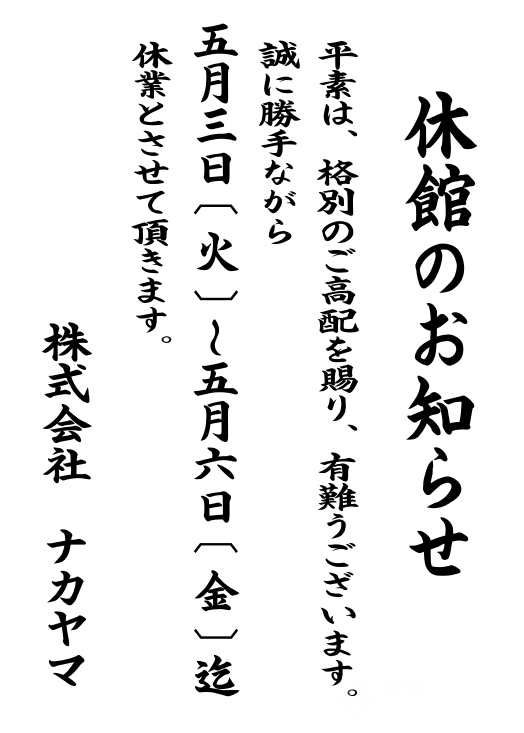 休館のお知らせ
平素は、格別のご高配を賜り、有難うございます。
誠に勝手ながら
五月三日〔火〕～五月六日〔金〕迄
休業とさせて頂きます。
株式会社　ナカヤマ